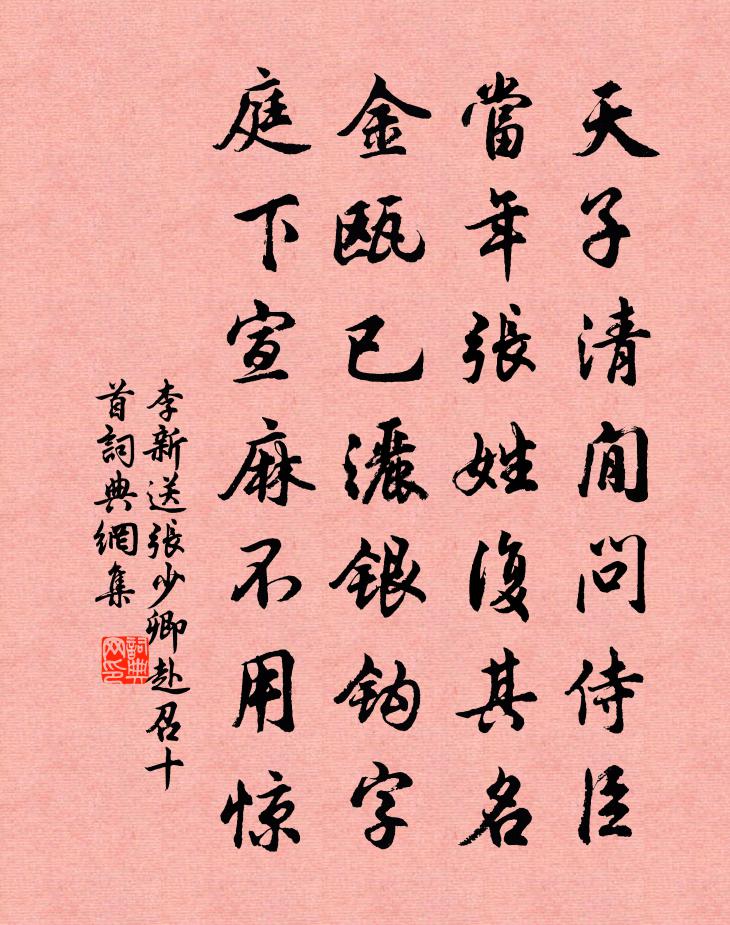 天子清閒問侍臣
當年張姓復其名
金甌已灑銀鈎字
庭下宣麻不用惊
李新送張少卿赴召十
首詞典網集
詞典
网印